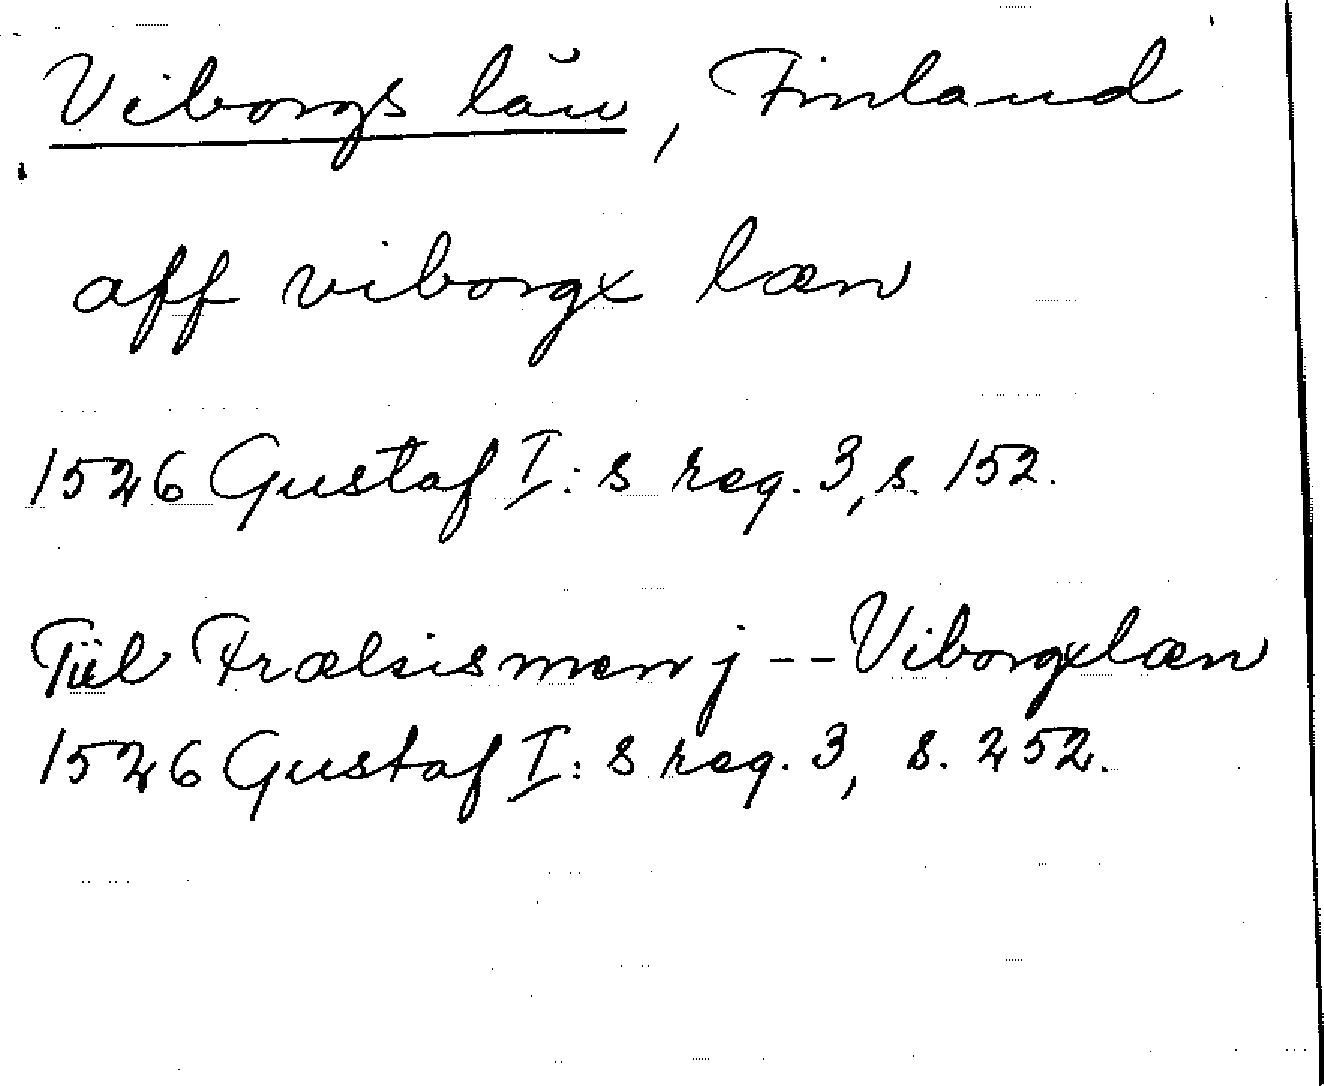 Viborgs län, Finland
aff viborgx læn
1526 Gustaf I:s reg. 3, s. 152.
Tiil Frælsismen j -- Viborgxlæn
1526 Gustaf I:s reg. 3, s. 252.